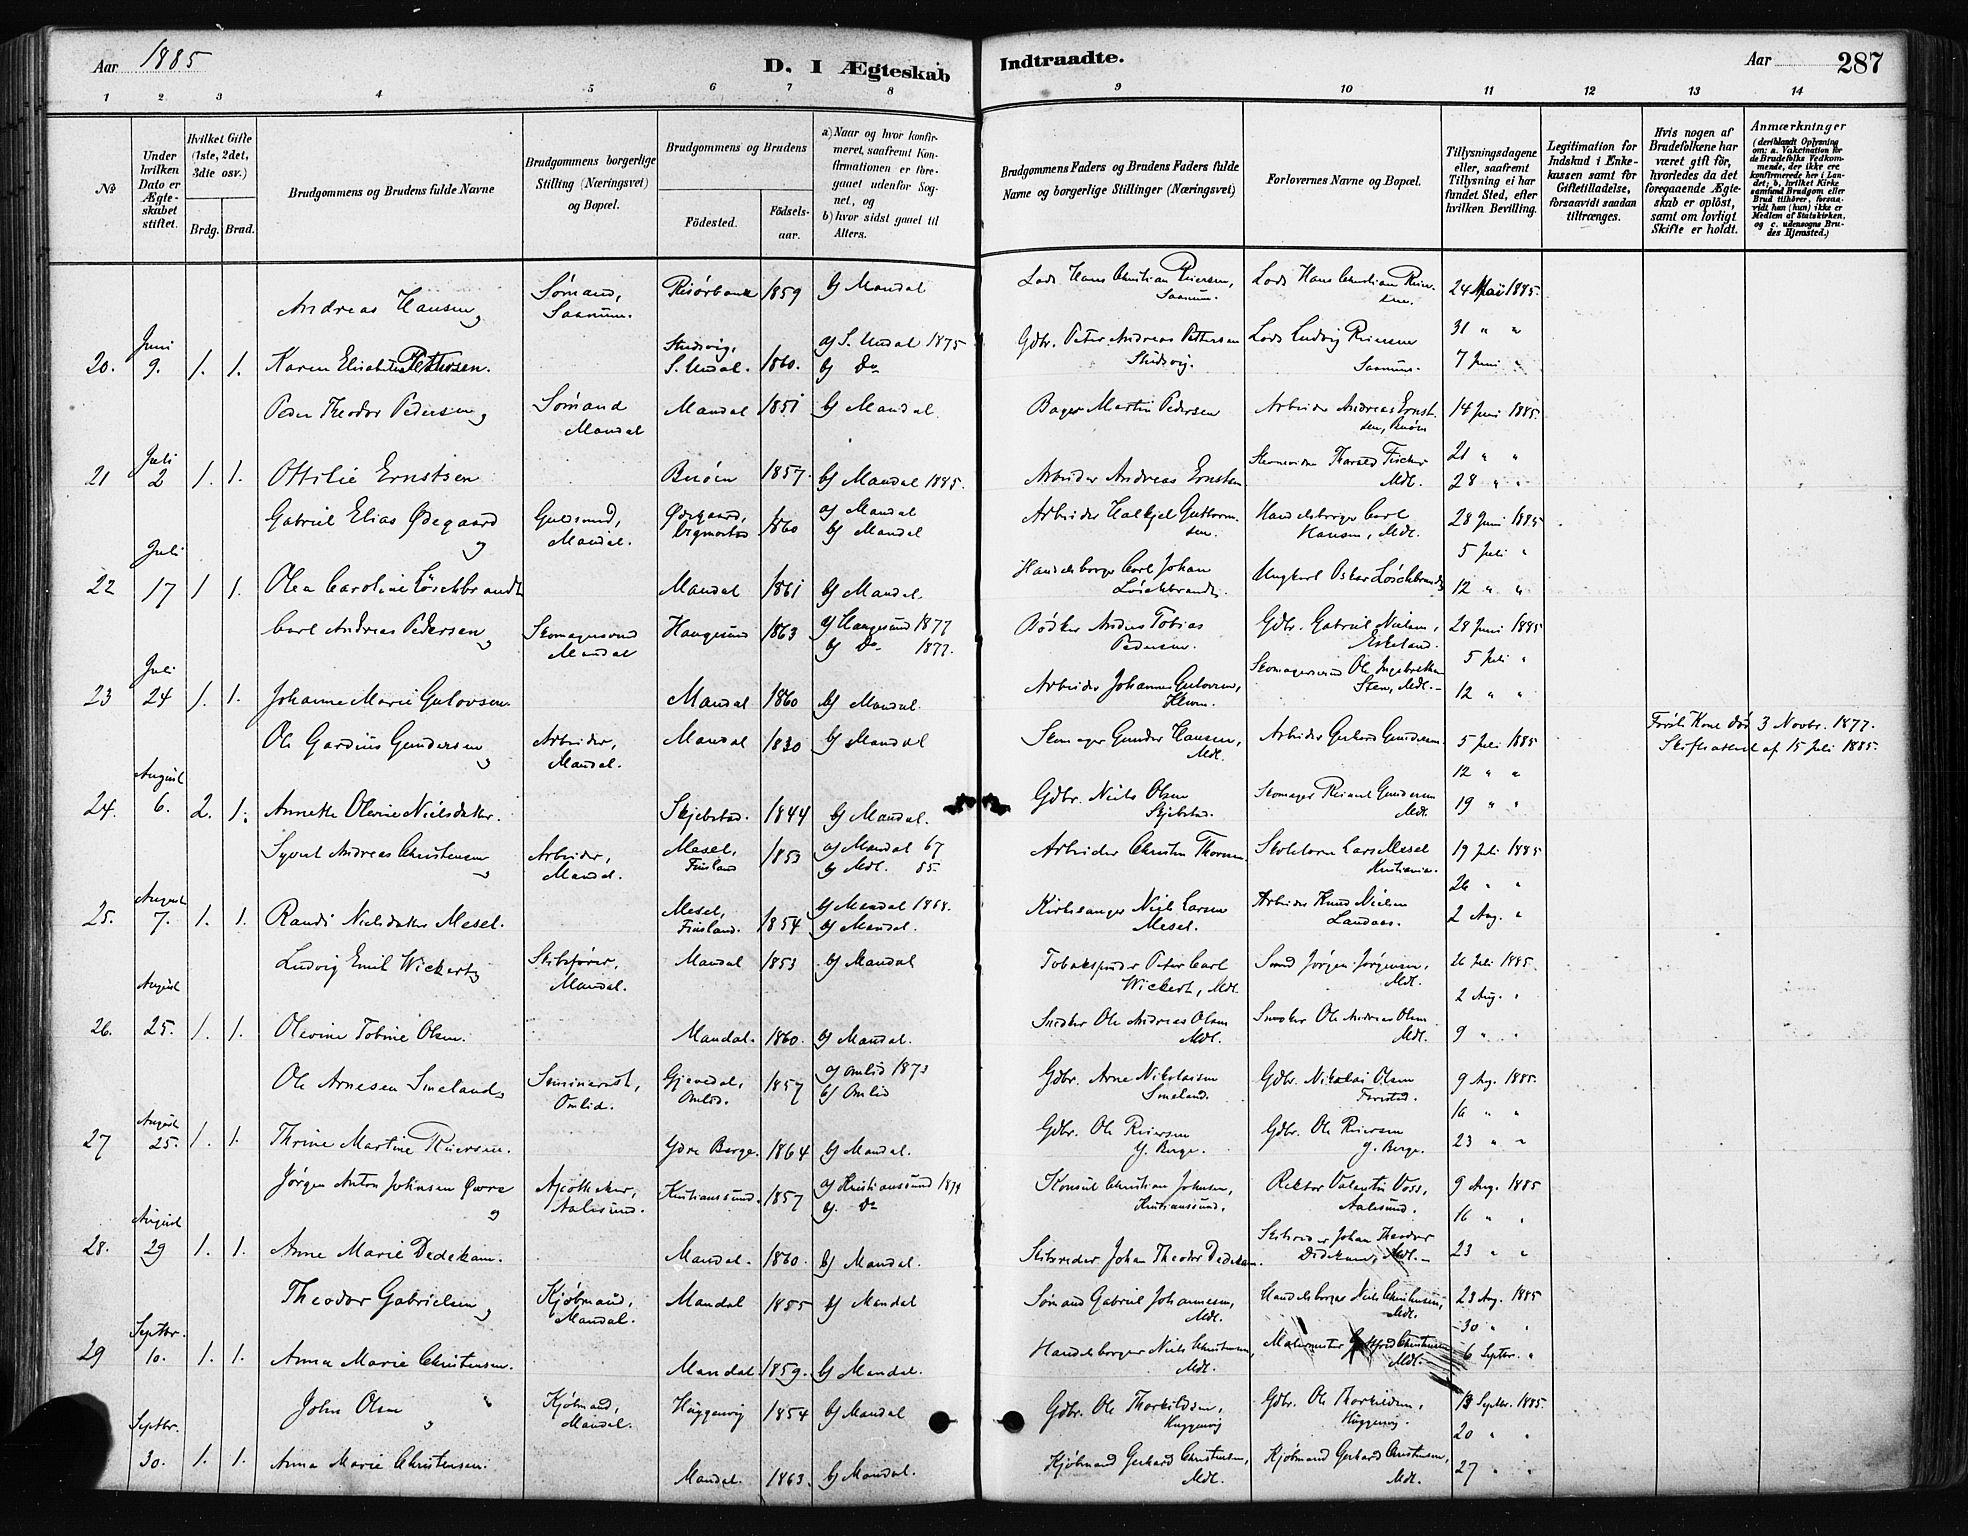 Aar 1885
D. I Ægteskab
Indtraadte.
Aar
287
1 2 3 4 5 6 7 8
9 10 11 12 13 14
№
Under hvilken Dato er Ægteskabet stiftet.
Hvilket Gifte (1ste, 2det, 3die osv.)
Brdg. Brud.
Brudgommens og Brudens fulde Navne
Brudgommens borgerlige Stilling (Næringsvei) og Bopæl.
Brudgommens og Brudens
Födested.
Födselsaar.
a) Naar og hvor konfirmeret, saafremt Konfirmationen er foregaaet udenfor Sognet, og
b) hvor sidst gaaet til Alters.
Brudgommens Faders og Brudens Faders fulde Navne og borgerlige Stillinger (Næringsvei)
Forlovernes Navne og Bopæl.
Tillysningsdagene eller, saafremt Tillysning ei har fundet Sted, efter hvilken Bevilling.
Legitimation for Indskud i Enkekassen samt for Giftetilladelse, forsaavidt saadan tiltrænges.
Hvis nogen af Brudefolkene har været gift för, hvorledes da det foregaaende Ægteskab er oplöst, samt om lovligt Skifte er holdt.
Anmærkninger
(deriblandt Oplysning om: a. Vakcination for de Brudefolks Vedkommende, der ikke ere konfirmerede her i Landet; b. hvilket Kirkesamfund Brudgom eller Brud tilhörer, forsaavidt han (hun) ikke er Medlem af Statskirken, og c. udensogns Brudes Hjemsted.)
Andreas Hansen, Sømand, 1859 b) Mandal Lods Hans Christian Reiersen, Lods Hans Christian Reiersen. 24 Mai 1885.
31 " "
20. Juni 9. 1. 1. Karen Elisabeth Pettersen. S. Undal. 1860. a) S. Undal 1875 b) Do Gdbr. Peter Andreas Pettersen Lods Ludvig Reiersen 7 Juni "
Peder Theodor Pedersen, Sømand Mandal Mandal 1851 b) Mandal. Bager Martin Pedersen Arbeider Andreas Ernstsen, 14 Juni 1885.
21 " "
21 Juli 2 1. 1. Ottilie Ernstsen 1857. b) Mandal 1885. Arbeider Andreas Ernstsen Fischer Mdl. 28 " "
Gabriel Elias Ødegaard Guldsmed, Mandal. Ødegaard, 1860 a) Mandal b) Mandal Arbeider Handelsborger Carl Hansen, Mdl. 28 Juni 1885
5 Juli "
22 Juli 17 1 1. Olea Caroline Löschbrandt Mandal 1861 b) Mandal. Handelsborger Carl Johan Löschbrandt. Ungkarl Oskar Löschbrandt 12 " "
Carl Andreas Pedersen, Skomagersvend Mandal Haugesund 1863 a) Haugesund 1877 b) Do 1877. Bødker Tobias Pedersen. Gdbr. Gabriel Nielsen, Eskeland. 28 Juni 1885
5 Juli "
23 Juli 24 1. 1. Johanne Marie Gulovsen. Mandal 1860 b) Mandal. Arbeider Johannes Gulovsen, Skomagersvend Ole Mdl. 12 " "
Ole Gundersen, Arbeider, Mandal. Mandal 1830 b) Mandal Skomager Gunder Hansen, Mdl. Arbeider Gerhard Gundersen 5 Juli 1885 Første Kone død 3 Novbr. 1877. Skifteattest af 15 Juli 1885.
12 " "
24. August 6. 2. 1. Annette Olevine Nielsdatter. Skjebstad. 1844 b) Mandal. Gdbr. Niels Olsen Skjebstad. Skomager Gundersen Mdl. 19 " "
Syvert Andreas Christensen, Arbeider, Mandal. Mesel, Finsland 1853 a) Mandal 67 b) Mdl. 85. Arbeider Christen Lars Mesel Kristiania. 19 Juli 1885
26 " "
25. August 7. 1. 1. Randi Nielsdatter Mesel. Mesel, Finsland. 1854 b) Mandal 1868. b) Mandal. Kirkesanger Niels Larsen Mesel. Arbeider Knud Nielsen Landaas. 2 Aug. "
Ludvig Emil Wickert, Skibsfører, Mandal. Mandal 1853 b) Mandal Tobakspinder Peter Carl Wickert, Mdl. Jørgen Jørgensen, Mdl. 26 Juli 1885.
2 Aug. "
26. August 25. 1. 1. Olevine Tobine Olsen. Mandal. 1860. a) Mandal. Snedker Ole Andreas Olsen Mdl. Snedker Ole Andreas Olsen Mdl. 9 " "
Ole Arnesen Smeland, Seminarist, Omlid. Gjøvedal, Omlid. 1857 a) Omlid 1873 b) Omlid Gdbr. Arne Nikolaisen Smeland. Gdbr. Nikolai Olsen 9 Aug. 1885.
16 " "
27 August 25. 1. 1. Thrine Martine Reiersen. Ydre Berge. 1864 b) Mandal. Gdbr. Ole Reiersen Y. Berge. Gdbr. Ole Reiersen Y. Berge. 23 " "
Jørgen Anton Johnsen Apotheker, Aalesund. Kristianssund. 1857 a) Kristianssund b) Do Konsul Christian Johnsen, Kristianssund. Rektor Valentin Voss, Aalesund. 9 Aug. 1885
16 " "
28. August 29 1. 1. Anne Marie Dedekam. Mandal. 1860. b) Mandal. Skibsreder Johan Theodor Dedekam. Skibsreder Johan Theodor Dedekam, Mdl. 23 " "
Theodor Gabrielsen, Kjøbmand, Mandal. Mandal 1855 b) Mandal Sømand Gabriel Johannesen, Mdl. Handelsborger Niels Christensen, Mdl. 23 Aug. 1885
30 " "
29 Septbr. 10. 1. 1. Anna Marie Christensen. Mandal 1859. b) Mandal. Handelsborger Niels Christensen, Mdl. Christensen Mdl. 6 Septbr. "
John Olsen, Kjøbmand, Mandal. 1854 b) Mandal Gdbr. Ole Thorkildsen, Gdbr. Ole Thorkildsen, 13 Septbr. 1885.
20 " "
Septbr. 30. 1. 1. Anna Marie Christensen. Mandal. 1863. b) Mandal. Kjøbmand Gerhard Christensen, Mdl. Kjøbmand Gerhard Christensen, Mdl. 27 " "